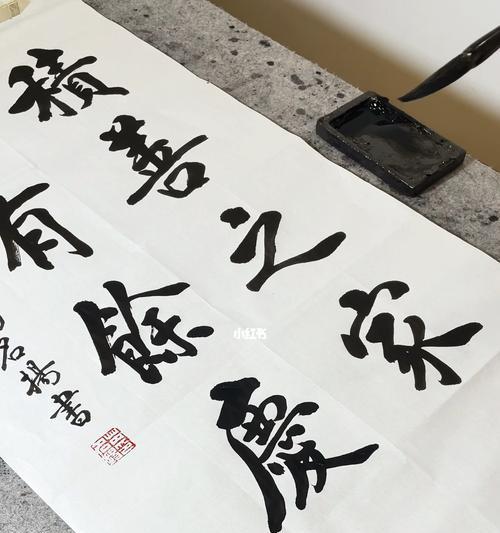 積善之家
有餘慶
揚書
小红书